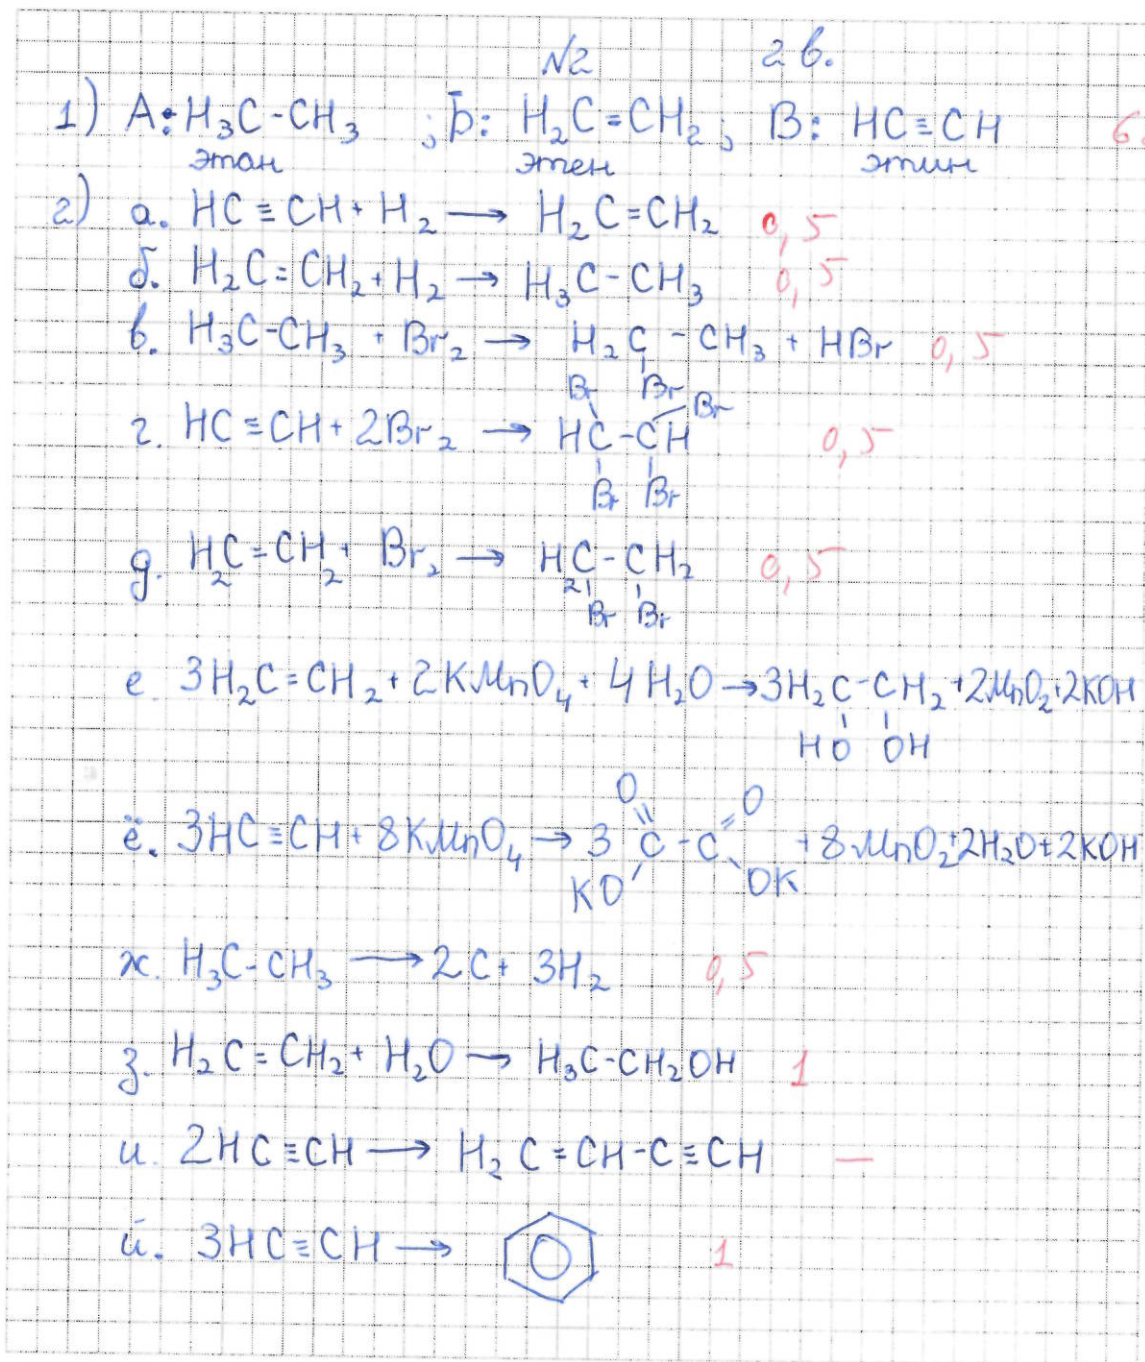 №2 2 в.
1) А: H₃C-CH₃ ; Б: H₂C=CH₂ ; В: HC≡CH 6
этан этен этин
2) а. HC≡CH + H₂ → H₂C=CH₂ 0,5
б. H₂C=CH₂ + H₂ → H₃C-CH₃ 0,5
в. H₃C-CH₃ + Br₂ → H₂C-CH₃ + HBr 0,5
Br Br Br
г. HC≡CH + 2Br₂ → HC-CH 0,5
Br Br
д. H₂C=CH₂ + Br₂ → H₂C-CH₂ 0,5
Br Br
е. 3H₂C=CH₂ + 2KMnO₄ + 4H₂O → 3H₂C-CH₂ + 2MnO₂ + 2KOH
HO OH
O O
ё. 3HC≡CH + 8KMnO₄ → 3 C-C + 8MnO₂ + 2H₂O + 2KOH
KO OK
ж. H₃C-CH₃ → 2C + 3H₂ 0,5
з. H₂C=CH₂ + H₂O → H₃C-CH₂OH 1
и. 2HC≡CH → H₂C=CH-C≡CH —
й. 3HC≡CH → 1